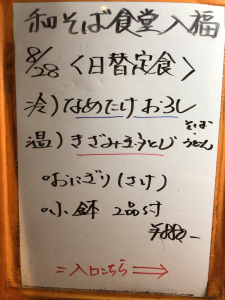 和そば食堂入福
8/28 〈日替定食〉
冷) なめたけおろし
そば
温) きざみきつねとじ うどん
○おにぎり(さけ)
○小鉢 2品付
¥880-
=入口こちら⇒